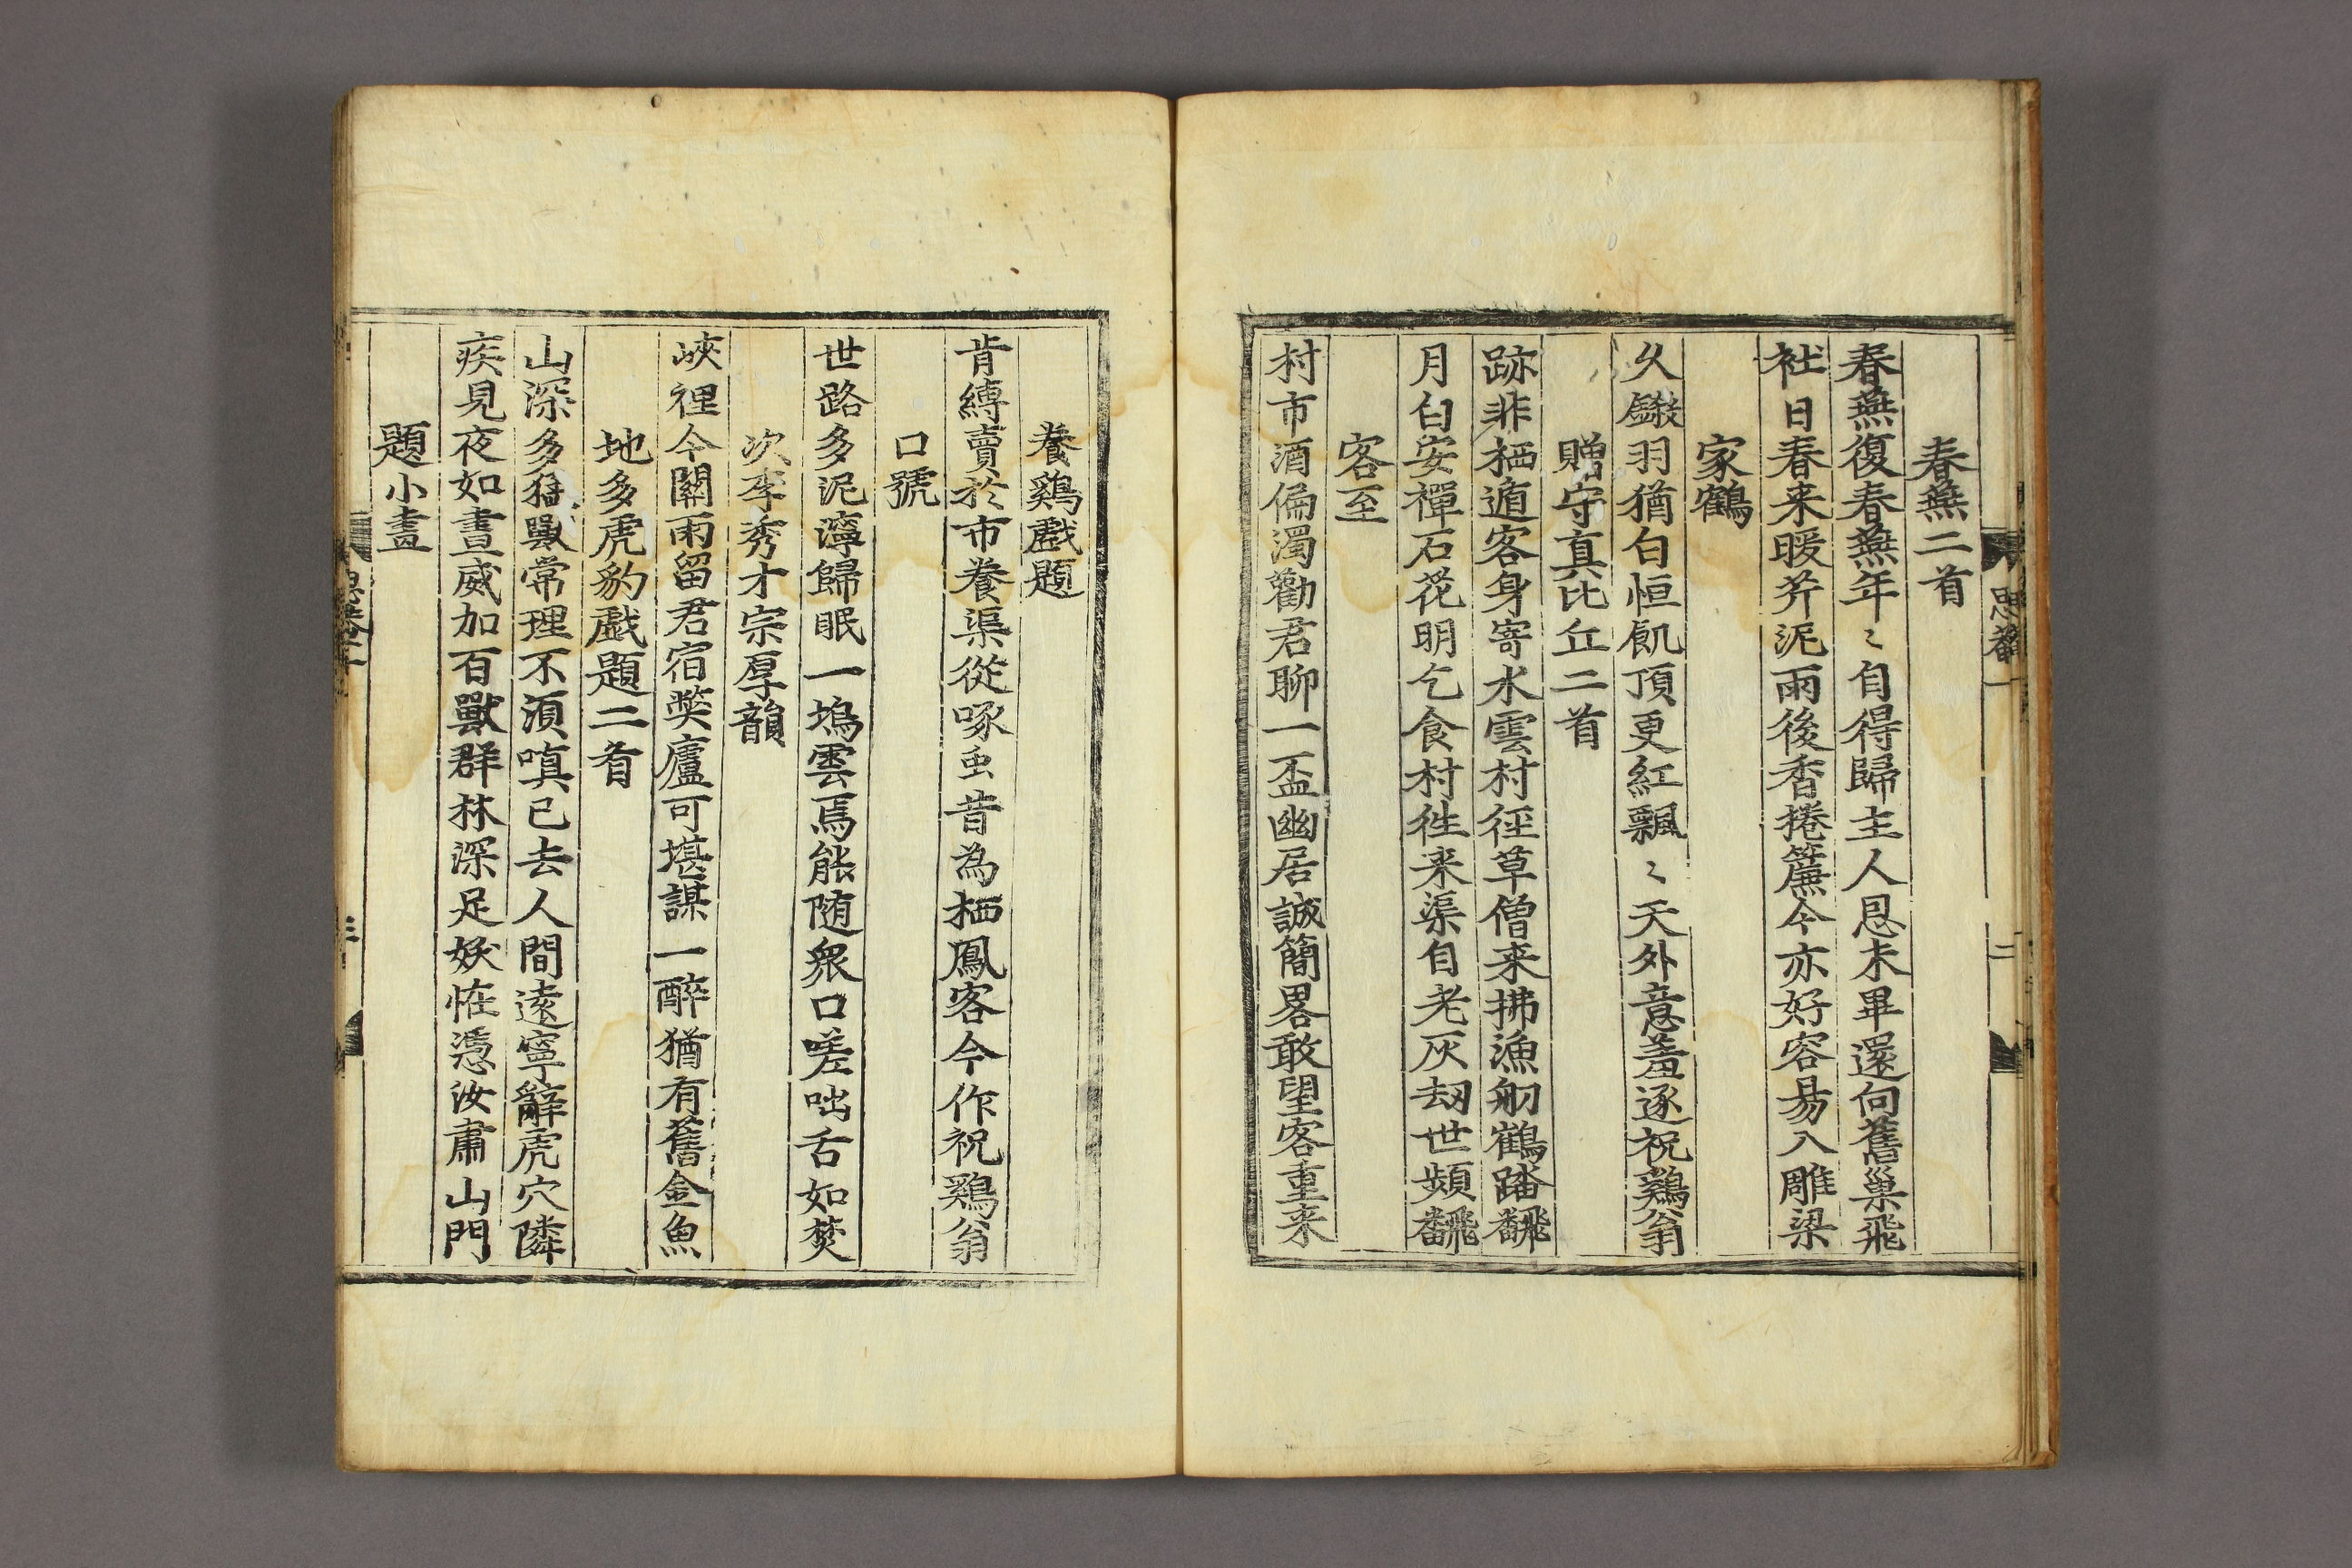 思菴一
二
春燕二首
春燕復春燕年〻自得歸主人恩未畢還向舊巢飛
社日春来暖芹泥雨後香捲簾今亦好容易入雕梁
家鶴
久鎩羽猶白恒飢頂更紅飄〻天外意羞逐祝鷄翁
贈守真比丘二首
跡非栖遁客身寄水雲村徑草僧来拂漁舠鶴踏飜
月白安禪石花明乞食村徃来渠自老灰刼世頻飜
客至
村市酒偏濁勸君聊一盃幽居誠簡畧敢望客重来
養鷄戱題
肯縛賣於市養渠從啄虫昔為栖鳳客今作祝鷄翁
口號
世路多泥濘歸眠一塢雲焉能随衆口嗟咄舌如焚
次李秀才宗厚韻
峽裡今闌雨留君宿獘廬可堪謀一醉猶有舊金魚
地多虎豹戱題二首
山深多猛獸常理不湏嗔已去人間遠寧辭虎穴隣
疾見夜如晝威加百獸群林深足妖恠憑汝肅山門
題小畫